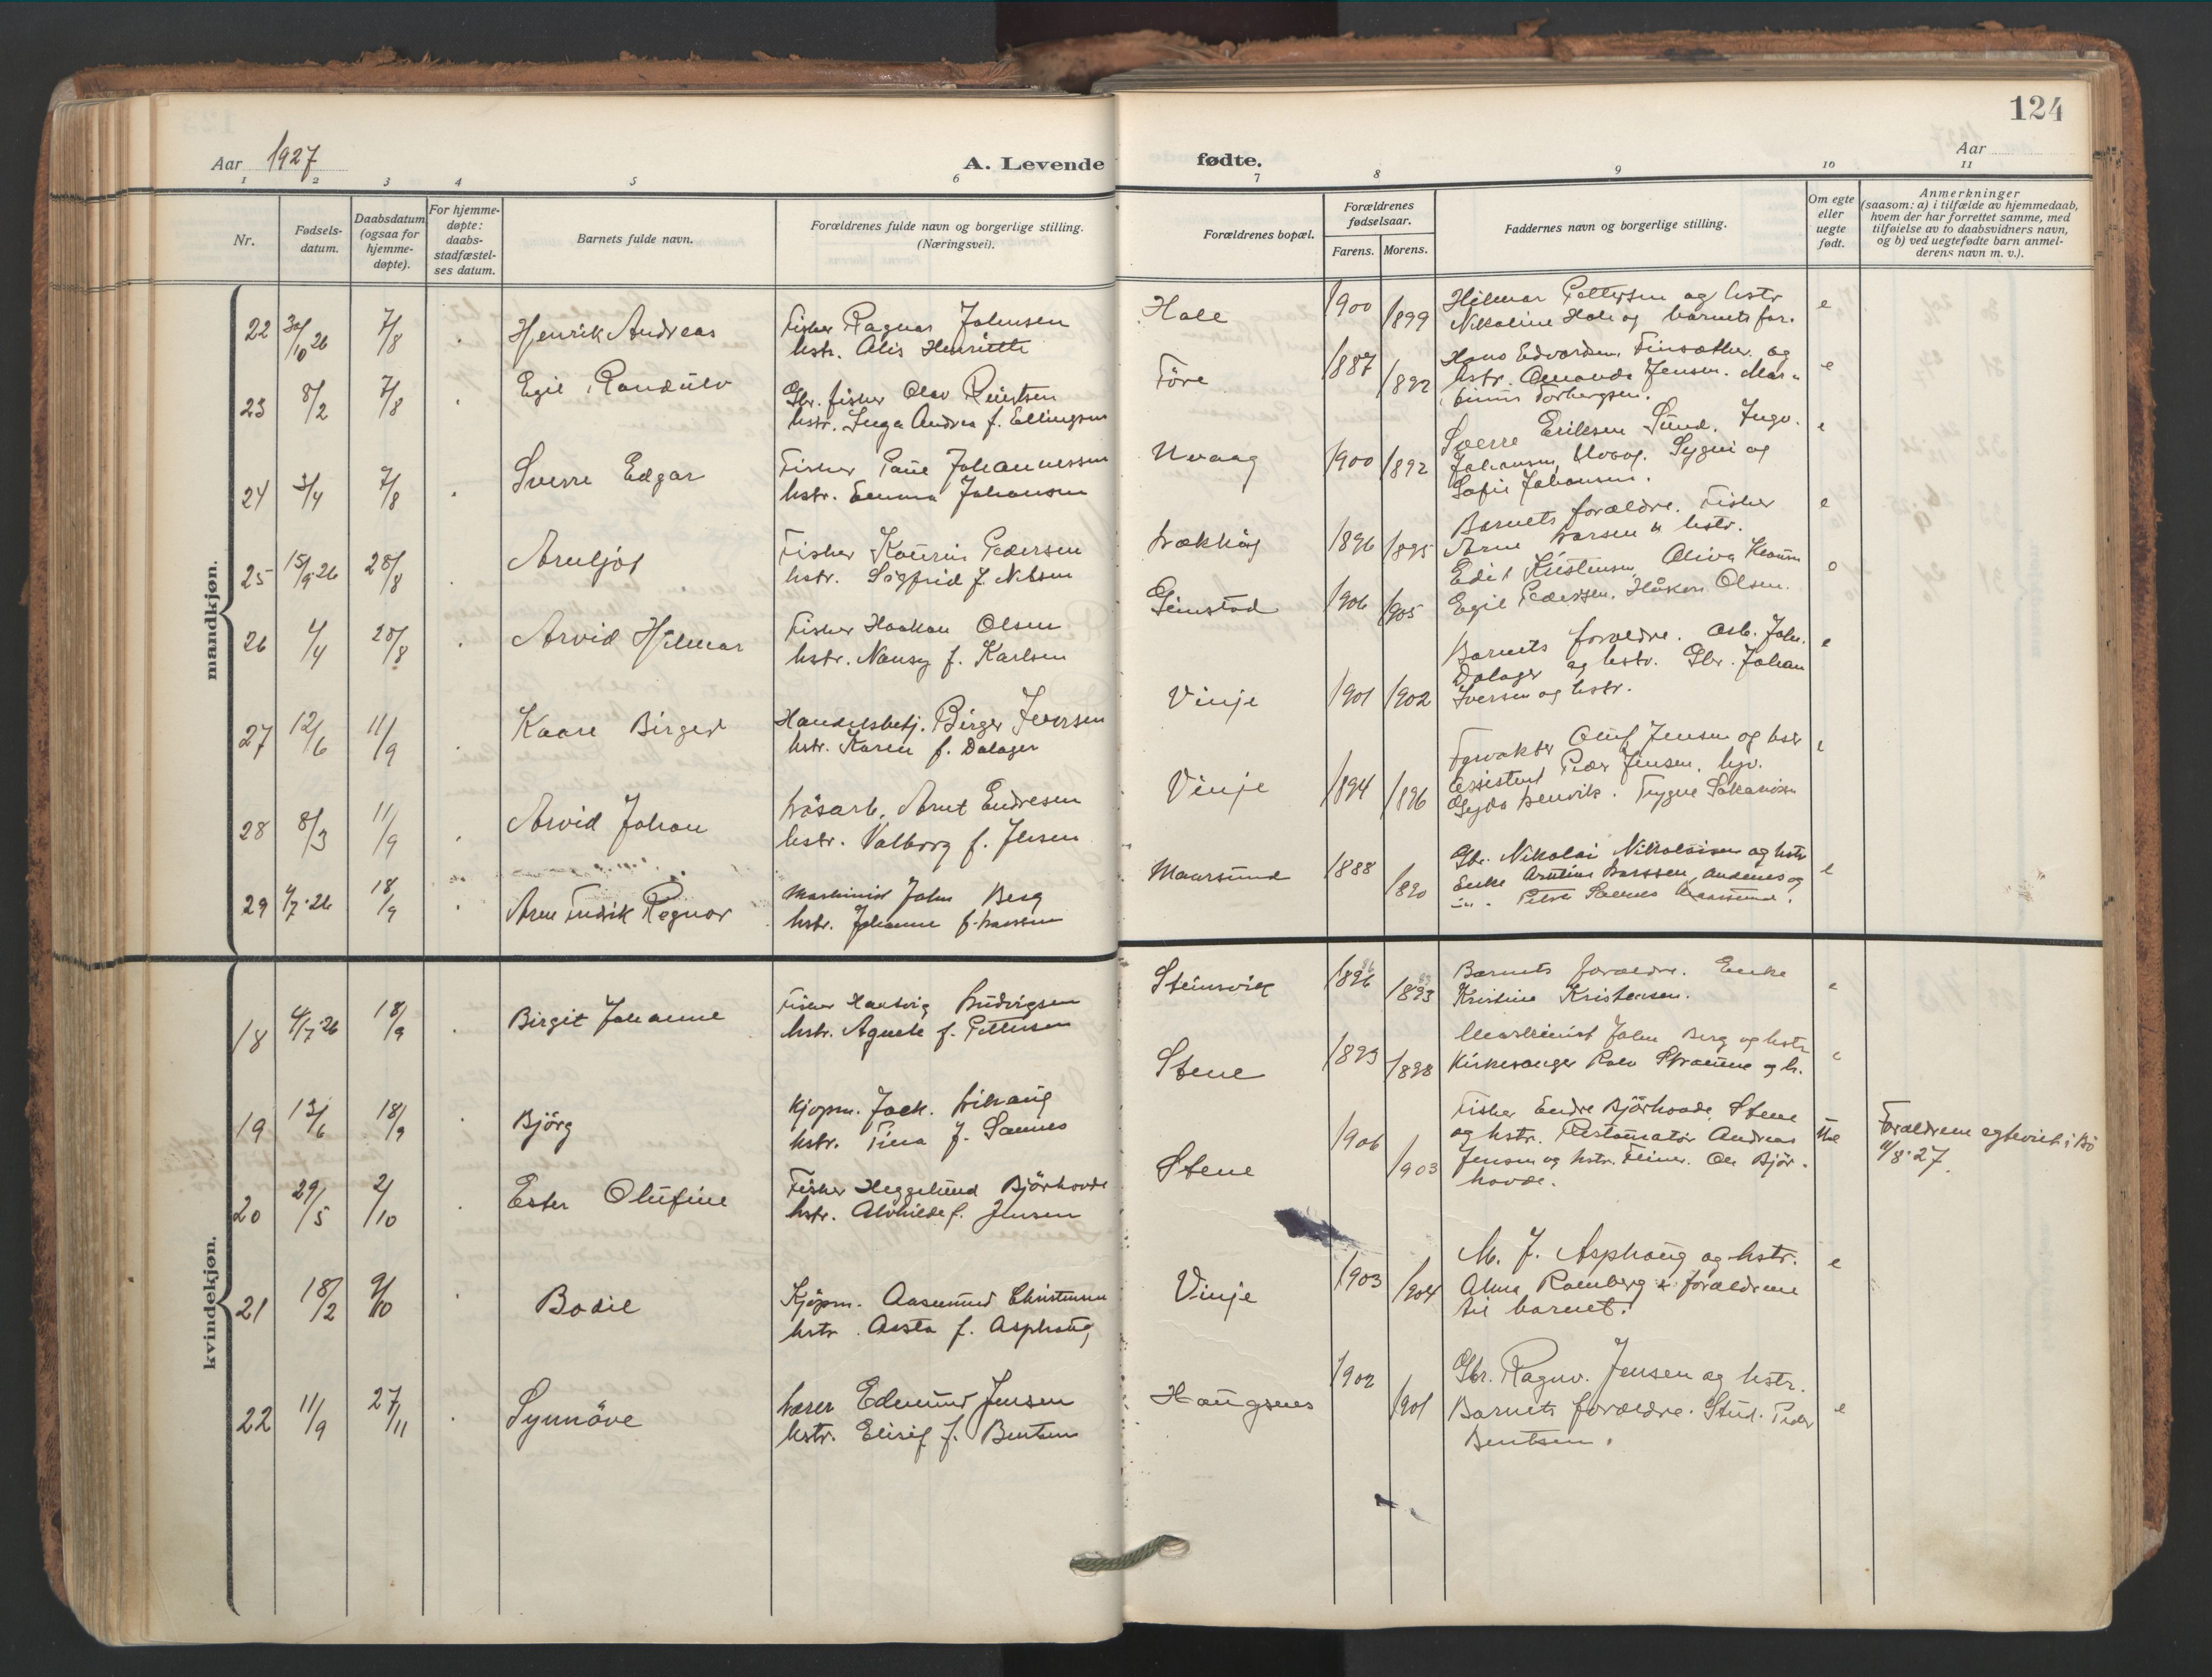 124
Aar 1927
A. Levende
fødte.
Aar
1 2 3 4 5 6 7 8 9 10 11
Nr.
Fødsels-
datum.
Daabsdatum
(ogsaa for
hjemme-
døpte).
For hjemme-
døpte:
daabs-
stadfæstel-
ses datum.
Barnets fulde navn.
Forældrenes fulde navn og borgerlige stilling.
(Næringsvei).
Forældrenes bopæl.
Forældrenes
fødselsaar.
Farens. Morens.
Faddernes navn og borgerlige stilling.
Om egte
eller
uegte
født.
Anmerkninger
(saasom: a) i tilfælde av hjemmedaab,
hvem der har forrettet samme, med
tilføielse av to daabsvidners navn,
og b) ved uegtefødte barn anmel-
derens navn m. v.).
mandkjøn.
22 30/10 26 7/8 Henrik Andreas
Fisker Ragnar Johnsen
hstr. Alis Henriette
Hale 1900 1899
Hilmar Pettersen og hstr
Nikoline Hole og barnets far. e
23 8/2 7/8 Egil Randulv
Gbr. fisker Olav Reinertsen
hstr. Inga Andrea f. Ellingsen
Føre 1887 1892
Hans Edvardsen, Finsæther og
hstr. Amanda Jensen. Mar-
Torbergsen. e
24 3/4 7/8 Sverre Edgar
Fisker Paul Johannessen
hstr. Emma Johansen
Uvaag 1900 1892
Sverre Eriksen Sund. Ingv.
Johansen, Uvaag. Sygni og
Sofie Johansen. e
25 15/9 26 28/8 Arnljot
Fisker Kaurin Pedersen
hstr. Sigfrid f. Nilsen
1896 1895
Barnets forældre. Fisker
Arne Larsen & hstr. e
26 4/4 28/8 Arvid Hilmar
Fisker Haakon Olsen
hstr. Nansy f. Karlsen
Grimstad 1906 1905
Edit Kristensen, Oliva
Egil Pedersen. Håkon Olsen.
27 12/6 11/9 Kaare Birger
Handelsbetj. Birger Iversen
hstr. Karen f. Dalager
Vinje 1901 1902
Barnets forældre. Arb. Joh.
Dalager og hstr. Gbr. Johan
Iversen og hstr. e
28 8/3 11/9 Arvid Johan
Løsarb. Arnt Endresen
hstr. Valborg f. Jensen
Vinje 1894 1896
Fyrvokter Oluf Jensen og hstr
Assistent Peder Jensen.
Trygve e
29 4/7 26 18/9 Arne Fredrik Regnor
Maskinist John Berg
hstr. Johanne f. Larssen
Maarsund 1888 1890
Gbr. Nikolai Nikolaisen og hstr
Enke Larssen, Andenes og
Petra Sannes Maarsund. e
kvindekjøn.
18 4/7 26 18/9 Birgit Johanne
Fisker Hartvig Ludvigsen
hstr. Agnete f. Pettersen
Steinsvik 1896 1893
Barnets forældre. Enke
Kristine Kristensen. e
19 13/6 18/9 Bjørg
Kjøpm. Jack. Lihaug
hstr. Tina f. Sannes
Stene 1893 1898
Maskinist John Berg og hstr
Kirkesanger Rolv Straume og h. e
20 29/5 2/10 Ester Olufine
Fisker Heggelund Bjørhovde
hstr. Alvhilde f. Jensen
Stene 1906 1903
Fisker Endre Bjørhovde, Stene
og hstr. Restauratør Andreas
Jensen og hstr. Ole Bjør-
hovde.
Forældrene egteviet i Bø
11/8 27.
21 18/2 9/10 Bodil
Kjøpm. Aasmund Christensen
hstr. Aasta f. Asphaug
Vinje 1903 1904
M. J. Asphaug og hstr.
Alma Romberg & forældrene
til barnet. e
22 11/9 27/11 Synnöve
Lærer Edmund Jensen
hstr. Elisif f. Bentsen
Haugsnes 1902 1901
Gbr. Ragnv. Jensen og hstr.
Barnets forældre. Stud. Peder
Bentsen. e